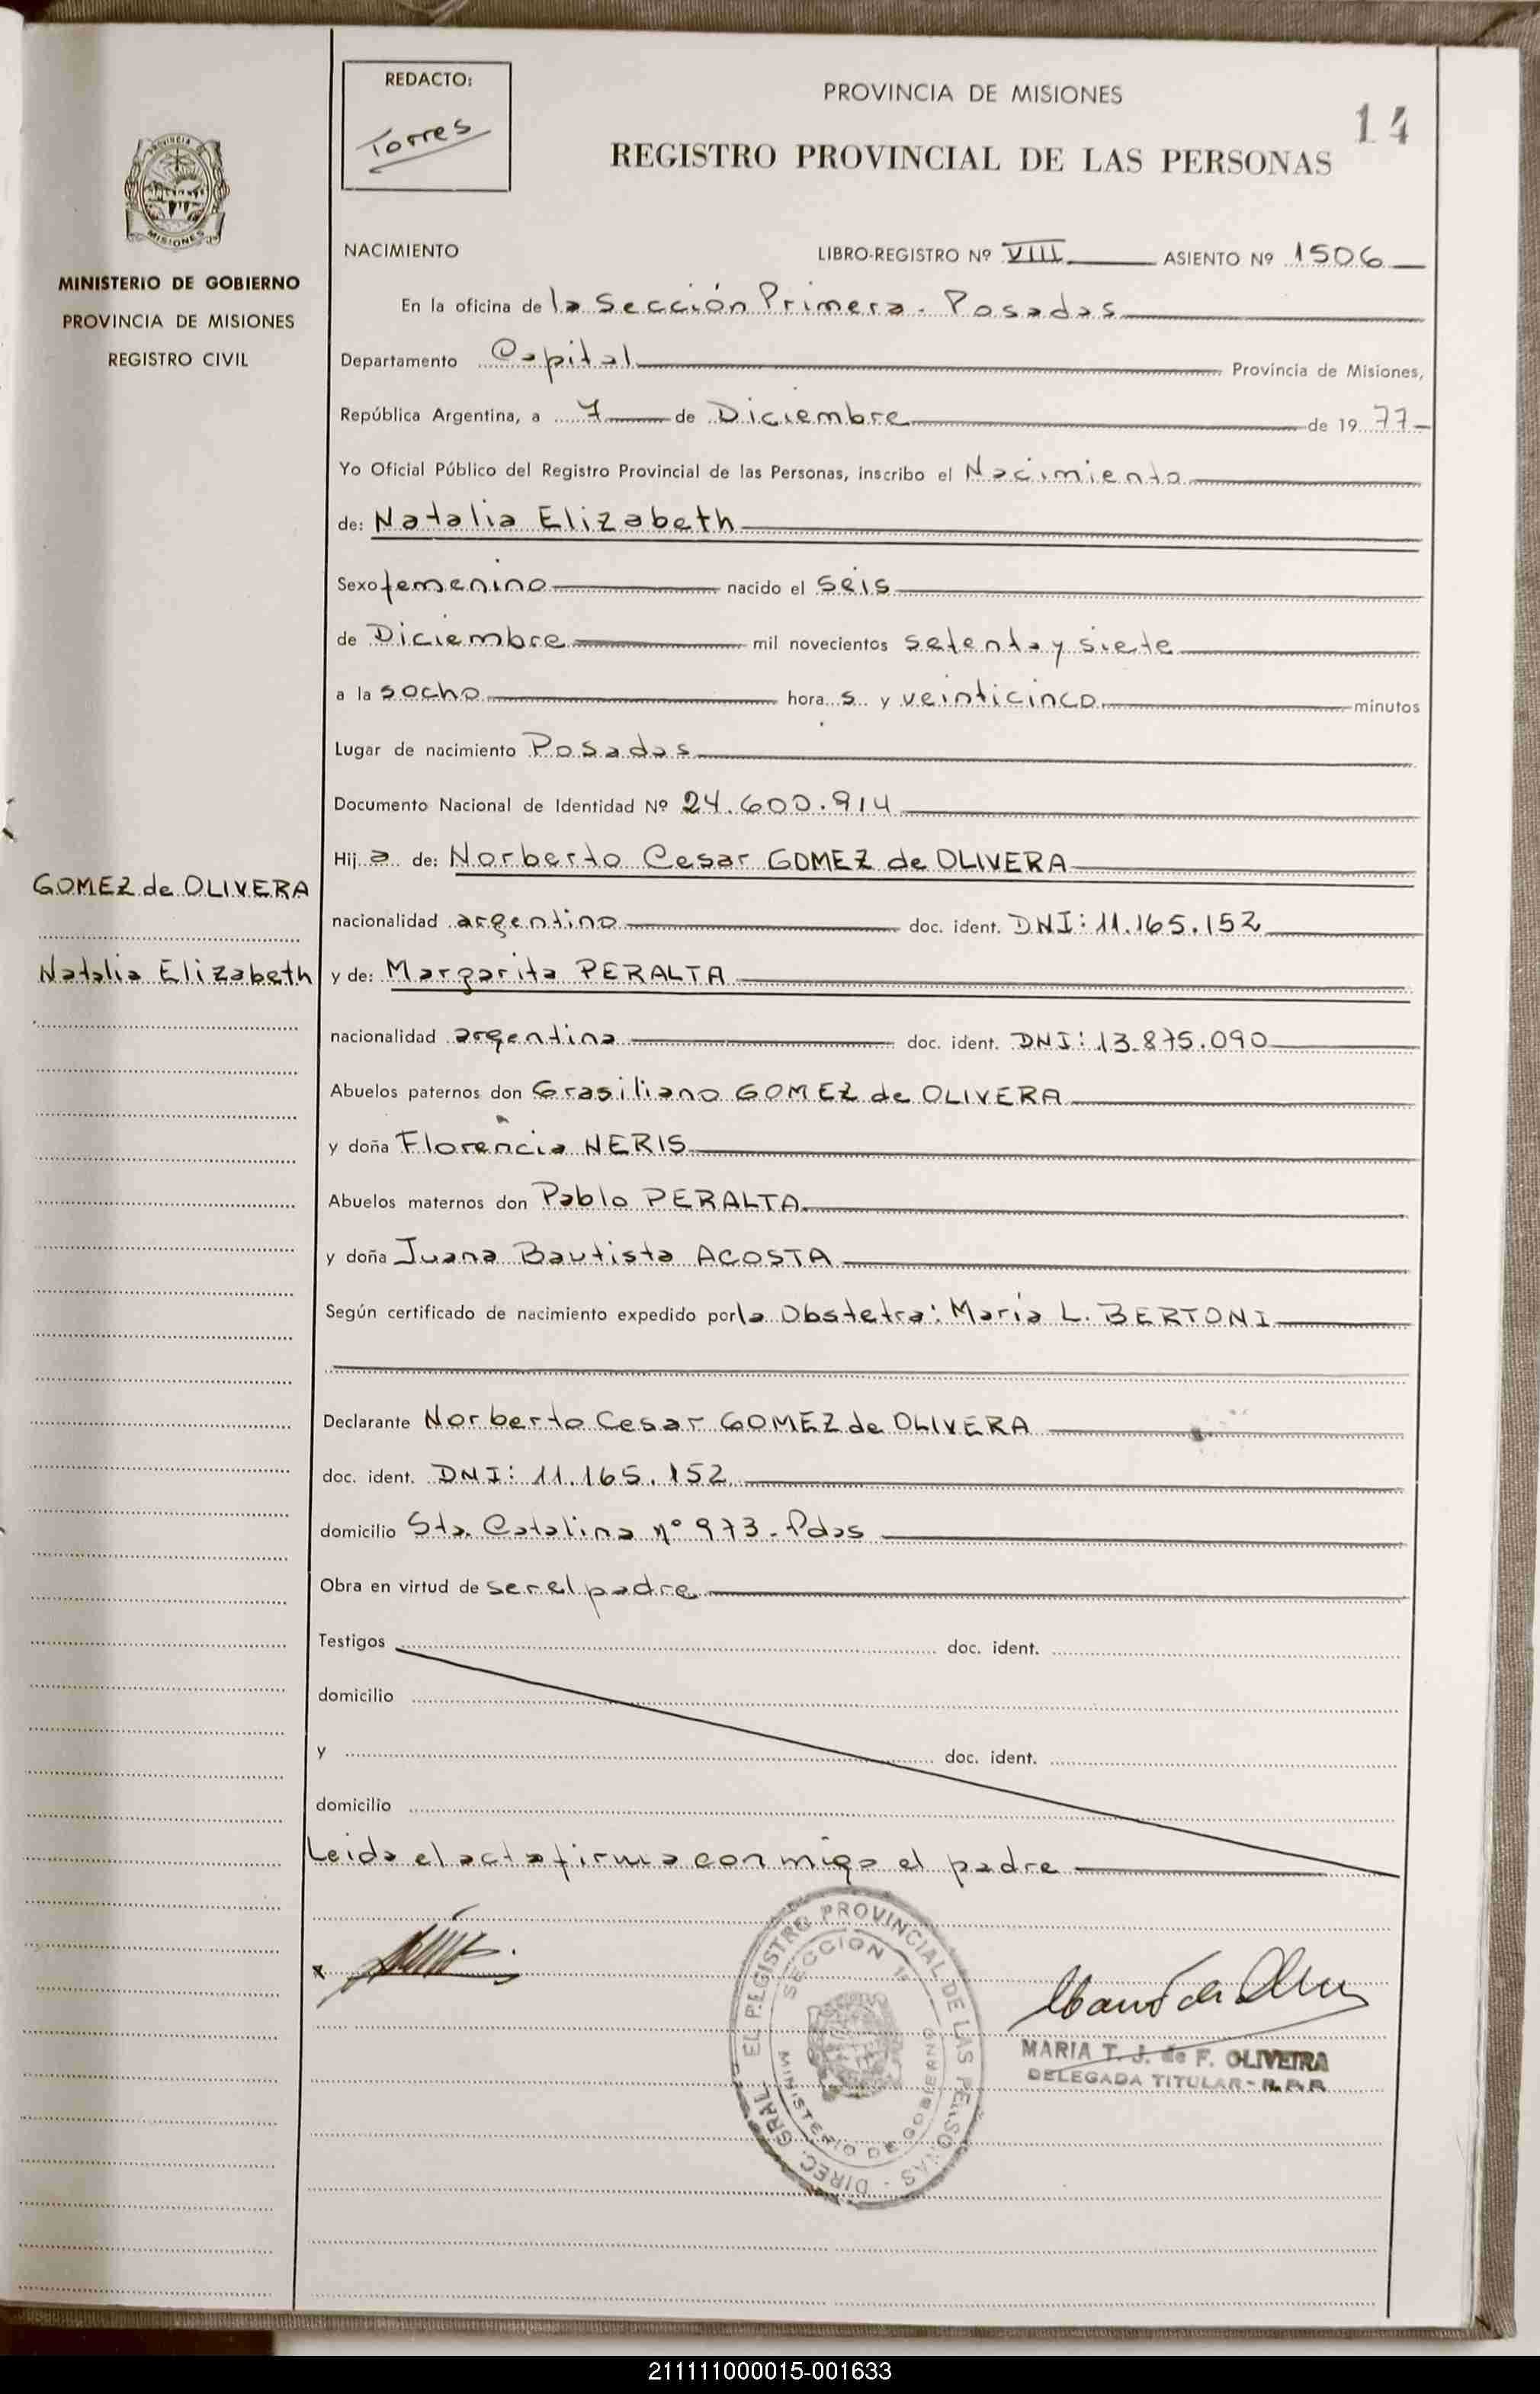 REDACTO:
Torres
PROVINCIA DE MISIONES
14
REGISTRO PROVINCIAL DE LAS PERSONAS
MISIONES
MINISTERIO DE GOBIERNO
PROVINCIA DE MISIONES
REGISTRO CIVIL
NACIMIENTO LIBRO-REGISTRO Nº VIII ASIENTO Nº 1506
En la oficina de la Sección Primera - Posadas
Departamento Capital Provincia de Misiones,
República Argentina, a 7 de Diciembre de 19 77
Yo Oficial Público del Registro Provincial de las Personas, inscribo el Nacimiento
de: Natalia Elizabeth
Sexo femenino nacido el seis
de Diciembre mil novecientos setenta y siete
a la s ocho hora s y veinticinco minutos
Lugar de nacimiento Posadas
Documento Nacional de Identidad Nº 24.600.914
Hij a de: Norberto Cesar GOMEZ de OLIVERA
GOMEZ de OLIVERA
nacionalidad argentino doc. ident. DNI: 11.165.152
Natalia Elizabeth
y de: Margarita PERALTA
nacionalidad argentina doc. ident. DNI: 13.875.090
Abuelos paternos don Grasiliano GOMEZ de OLIVERA
y doña Florencia NERIS
Abuelos maternos don Pablo PERALTA
y doña Juana Bautista ACOSTA
Según certificado de nacimiento expedido por la Obstetra: María L. BERTONI
Declarante Norberto Cesar GOMEZ de OLIVERA
doc. ident. DNI: 11.165.152
domicilio Sta. Catalina nº 973 - Pdas
Obra en virtud de ser el padre
Testigos doc. ident.
domicilio
y doc. ident.
domicilio
Leida el acta firma conmigo el padre
x
DIREC. GRAL. EL REGISTRO PROVINCIAL DE LAS PERSONAS
SECCION 1ª
MINISTERIO DE GOBIERNO
MARIA T. J. de F. OLIVEIRA
DELEGADA TITULAR - R. P. P.
211111000015-001633